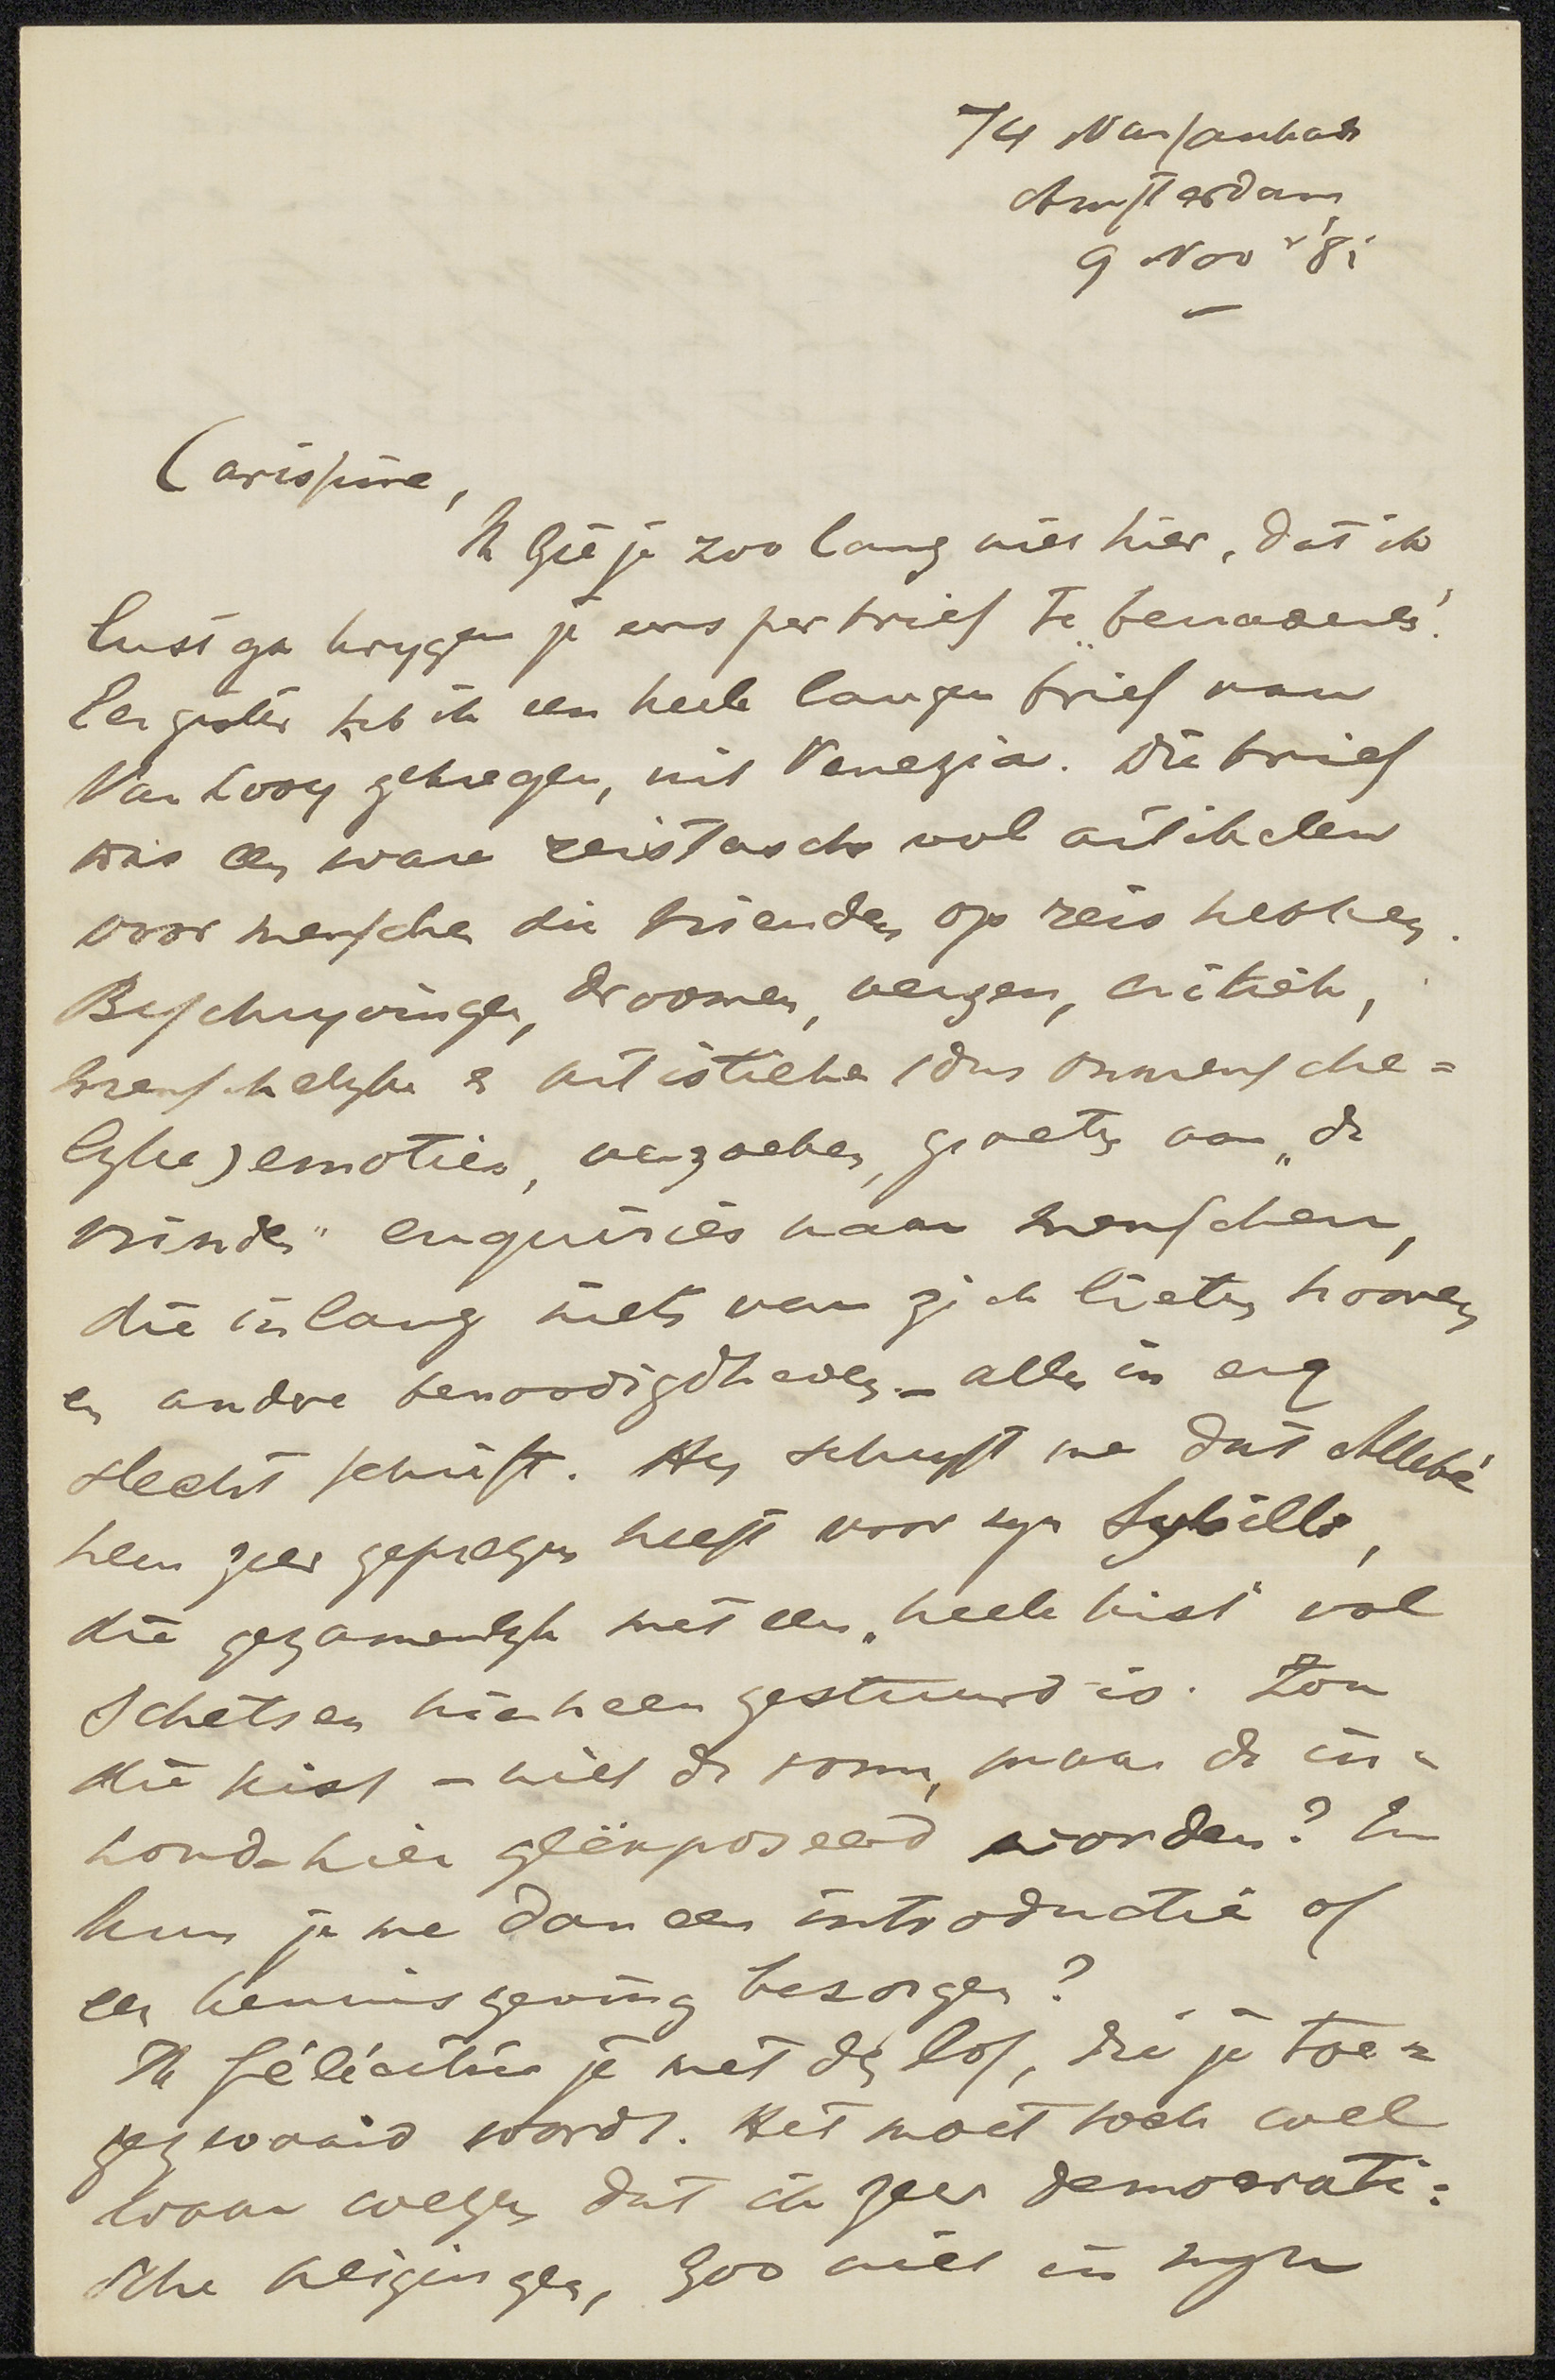 74 Nassaukade
Amsterdam
9 Nov '85
Carissime,
Ik zie je zoo lang niet hier, dat ik
lust ga krygen je eens per brief te „benaderen".
Eergister heb ik een heele langen brief van
Van Looy gekregen, uit Venezia. Die brief
was een ware reistasch vol artikelen
voor menschen die vrienden op reis hebben.
Beschryvingen, droomen, verzen, critiek,
menschelyke en artistieke (dus onmensche=
lyke) emoties, verzoeken, groeten aan „de
vrinden" enquiries naar menschen,
die in lang niets van zich lieten hooren
en andere benoodigdheden – alles in erg
slecht schrift. Hy schryft me dat Allebé
hem zeer geprezen heeft voor zyn Sybille,
die gezamenlyk met een „heele kist" vol
schetsen hierheen gestuurd is. Zou
die kist – niet de vorm, maar de in=
houd – hier geëxposeerd worden? En
kun je me dan een introductie of
een kennisgeving bezorgen?
Ik féliciteer je met den lof, die je toe=
gezwaaid wordt. Het moet toch wel
waar wezen dat ik zeer democrati=
sche neigingen, zoo niet in myn